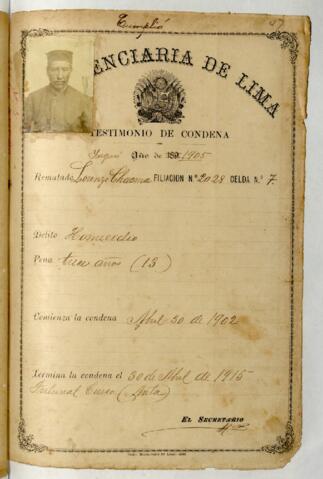 Cumplió
37
PENITENCIARIA DE LIMA
TESTIMONIO DE CONDENA
Año de 1905
Rematado Lorenzo Chacma FILIACION N.º 2028 CELDA N.º 7.
Delito Homicidio
Pena trece años (13)
Comienza la condena Abril 30 de 1902
Termina la condena el 30 de Abril de 1915
Tribunal Cuzco
EL SECRETARIO